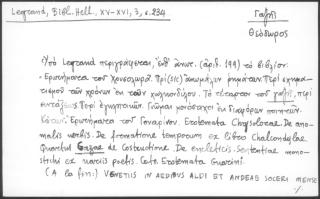 Legrand, Bibl. Hell., XV-XVI, 3, σ. 234
Γαζῆς
Θεόδωρος
Ὑπὸ Legrand περιγράφεται, ὑπ' ἀριθ. (ἀριθ. 199) τὸ βιβλίον:
Ἐρωτήματα τοῦ Χρυσολωρᾶ. Πρὶ (sic) ἀνωμάλων ῥημάτων. Περὶ σχηματισμοῦ
τῶν χρόνων ἐκ τῶν χαλκονδύλου. Τὸ τέταρτον τοῦ γαζῆ, περὶ
συντάξεως. Περὶ ἐγκλιτικῶν. Γνῶμαι μονόστιχοι ἐκ διαφόρων ποιητῶν.
Κάτων. Ἐρωτήματα τοῦ Γουαρίνου. Erotemata Chrysolorae. De anomalis
verbis. De formatione temporum ex libro Chalcondylae
Quartus Gazae de Constructione. De encleticis. Sententiae monostichi
ex variis poetis. Cato. Erotemata Guarini.
(A la fin:) VENETIIS IN AEDIBVS ALDI ET ANDEAE SOCERI MENSE